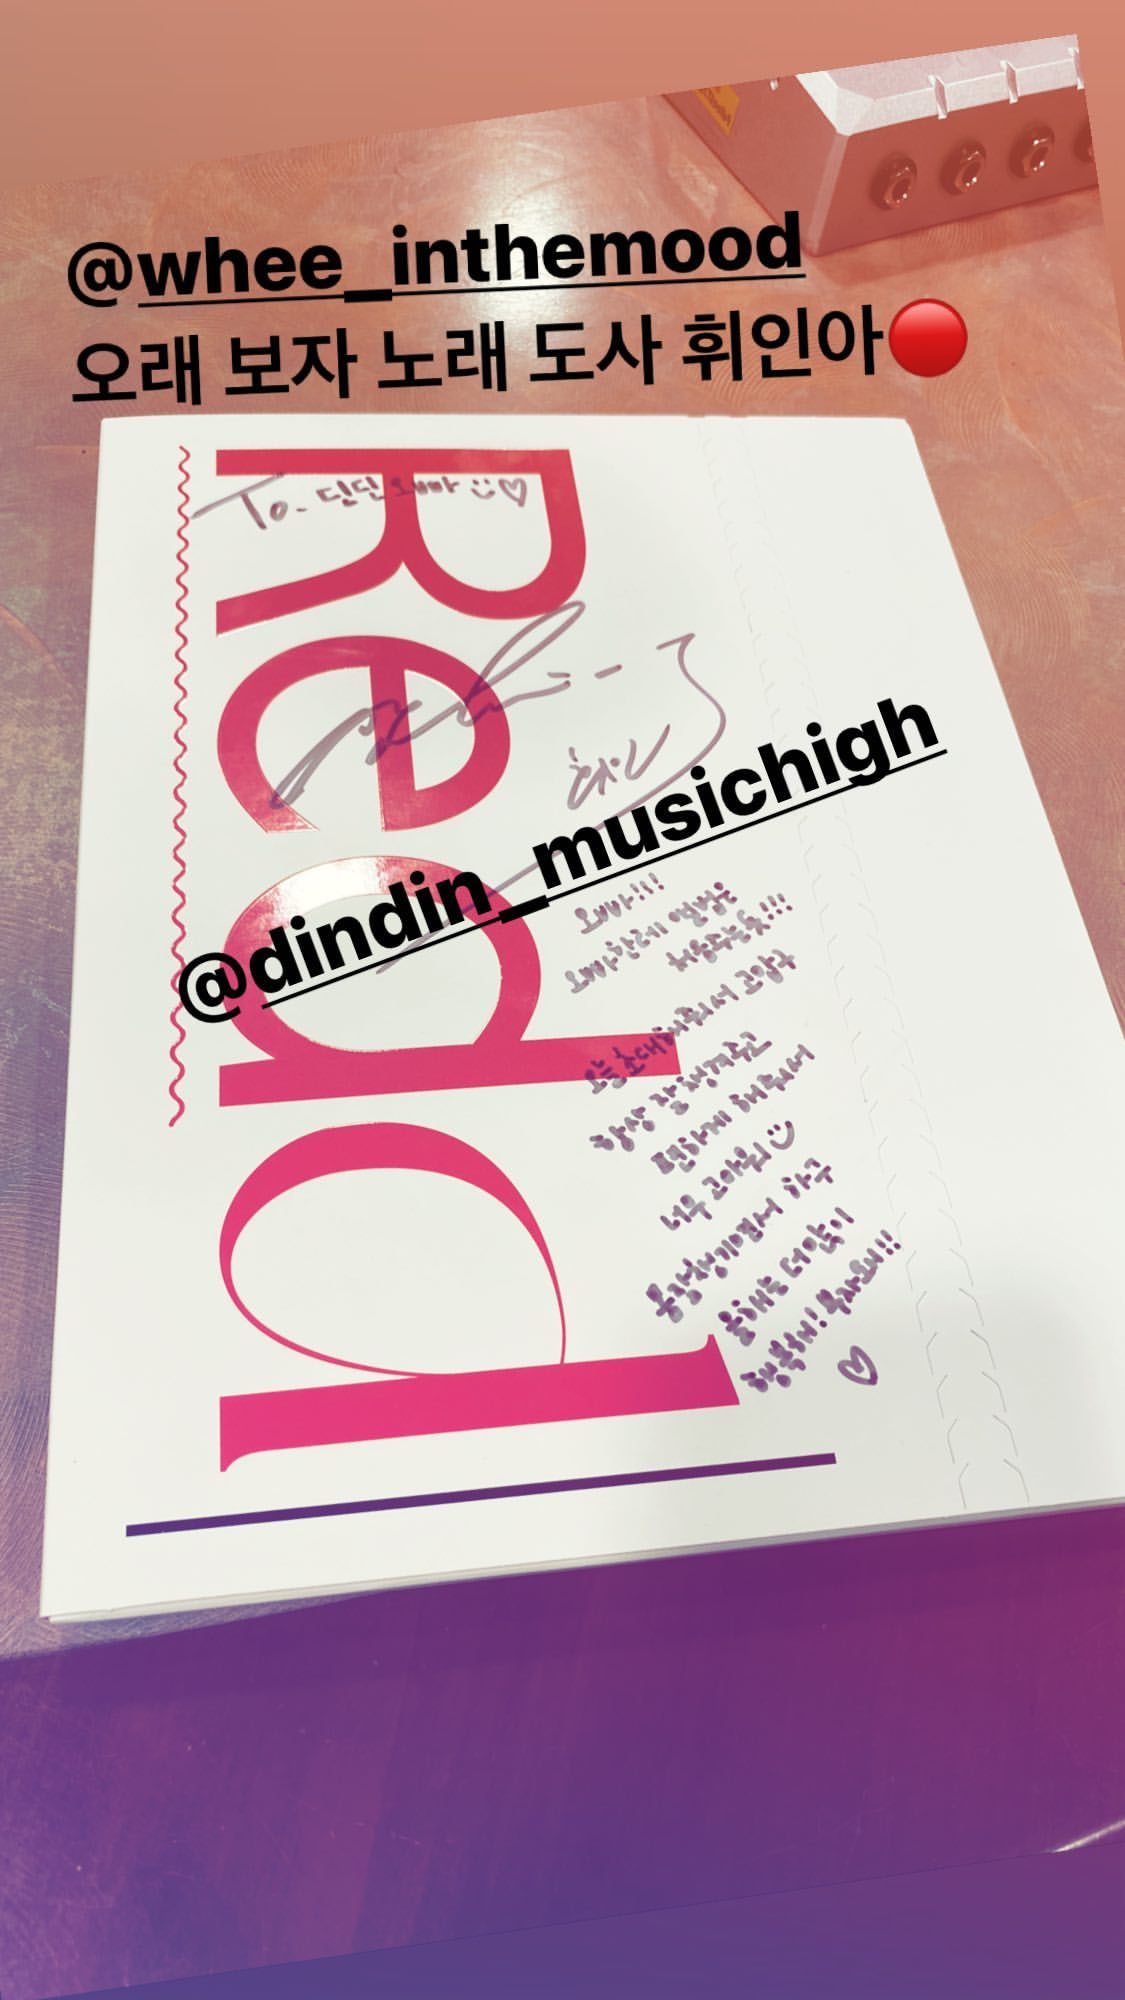 @whee_inthemood
오래 보자 노래 도사 휘인아🔴
Redd
To. 딘딘 오빠 :) ♡
휘인
@dindin_musichigh
오빠!!!
오빠한테 앨범을
오늘 초대해주셔서 고맙고
항상 잘 챙겨주고
편하게 해주셔서
너무 고마워 :)
하구
올해는 더 많이
행복해!
♡